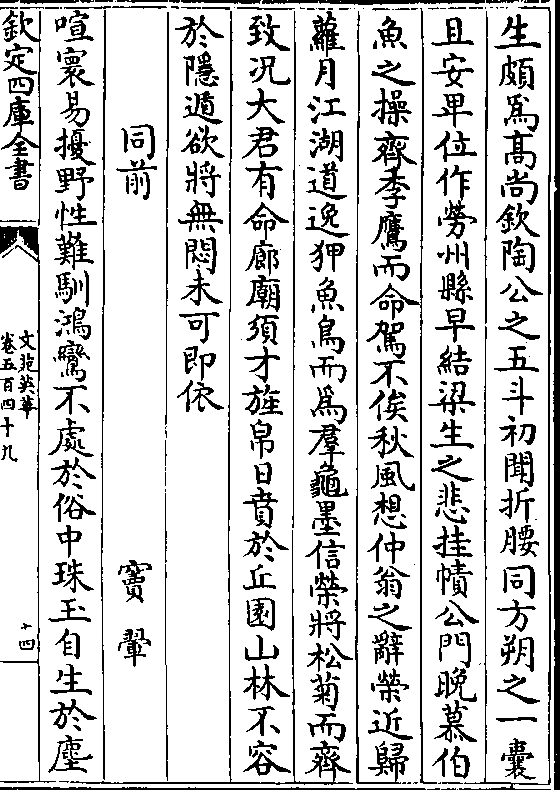 生頗爲髙尚欽陶公之五斗初聞折腰同方朔之一囊
且安卑位作勞州縣早結梁生之悲挂幘公門晚慕伯
魚之操齊季鷹而命駕不俟秋風想仲翁之辭榮近歸
蘿月江湖道逸狎魚鳥而爲羣龜墨信榮將松菊而齊
致况大君有命廊廟須才旌帛日賁於丘園山林不容
於隱遁欲將無悶未可即依
同前 竇鞏
喧寰易擾野性難馴鴻鸞不處於俗中珠玉自生於塵
欽定四庫全書
文苑英華
卷五百四十九
十四